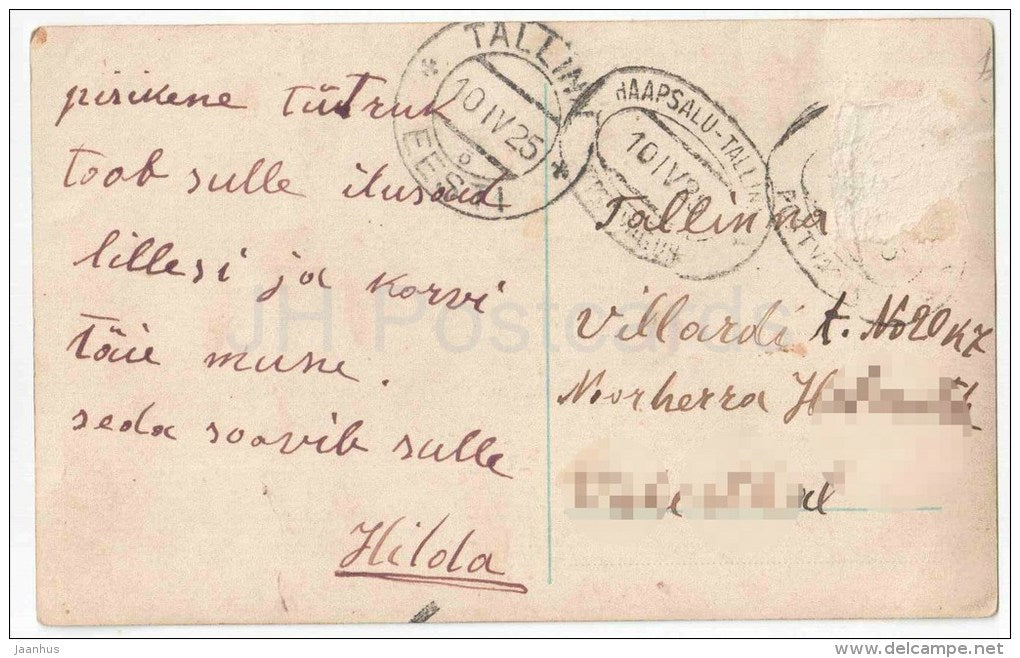 pisikene tütruk
toob sulle ilusaud
lillesi ja korvi
täie mune.
seda soovib sulle
Hilda
TALLINN
10 IV 25
EESTI
HAAPSALU-TALLINN
10 IV 25
Tallinna
Villardi t. No 20 k 7
Noorherra
JH Postcards
jaanhus
www.delcampe.net